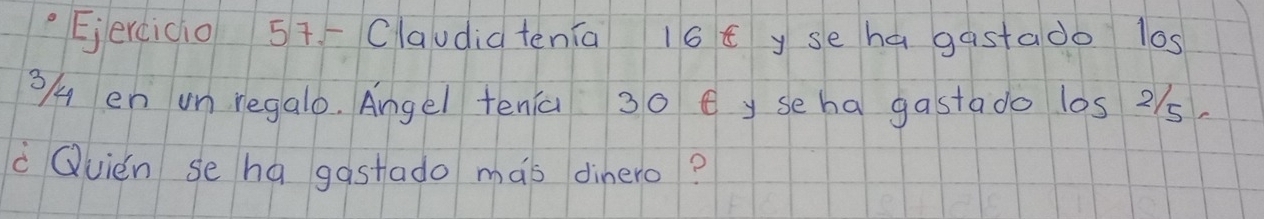 • Ejercicio 57.- Claudia tenía 16 € y se ha gastado los
3/4 en un regalo. Ángel tenía 30 € y se ha gastado los 2/5.
¿Quién se ha gastado más dinero?